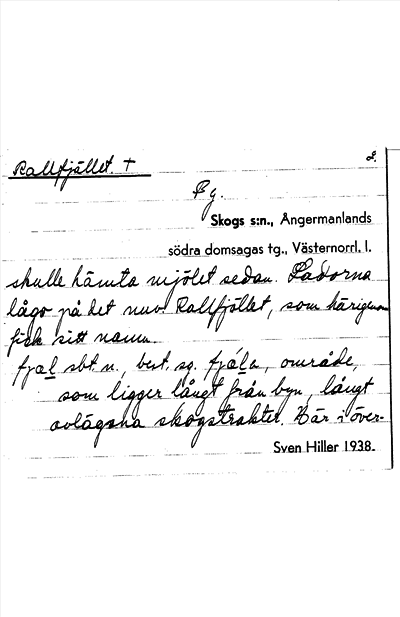 Rallfjället. † 2.
Fg.
Skogs s:n., Ångermanlands
södra domsagas tg., Västernorrl. l.
skulle hämta mjölet sedan. Ladorna
lågo på det nuv. Rallfjället, som härigenom
fick sitt namn.
fjäl sbt. n., best. sg. fjäla, område,
som ligger långt från byn, långt
avlägsna skogstrakter. Här i över-
Sven Hiller 1938.